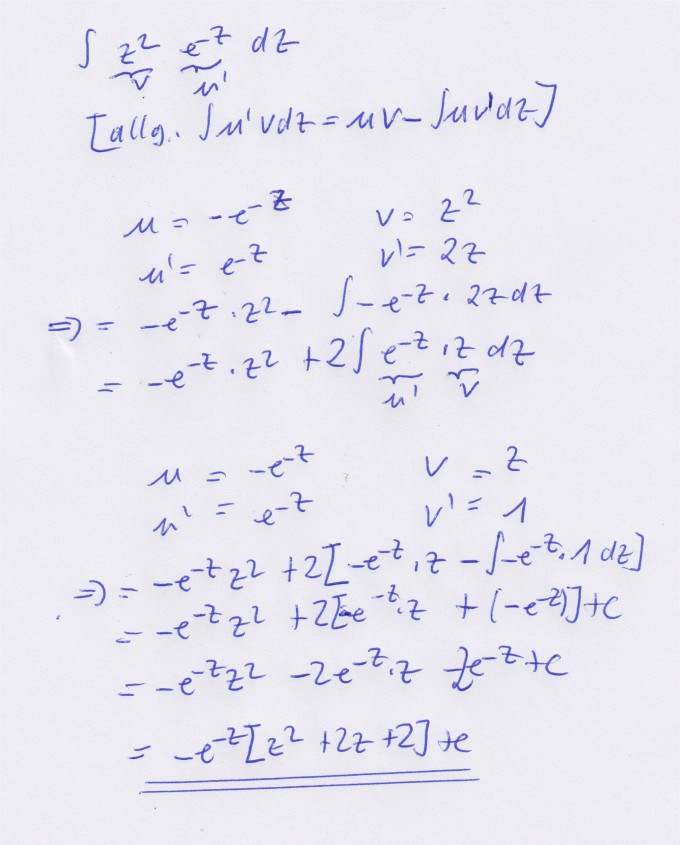 ∫ z² e^-z dz
v u'
[allg. ∫u'vdz = uv - ∫uv'dz]
u = -e^-z v = z²
u' = e^-z v' = 2z
⇒) = -e^-z · z² - ∫-e^-z · 2z dz
= -e^-z · z² + 2∫ e^-z · z dz
u' v
u = -e^-z v = z
u' = e^-z v' = 1
⇒) = -e^-z z² + 2[-e^-z · z - ∫-e^-z · 1 dz]
= -e^-z z² + 2[-e^-z · z + (-e^-z)] + c
= -e^-z z² - 2e^-z · z - 2e^-z + c
= -e^-z [z² + 2z + 2] + c